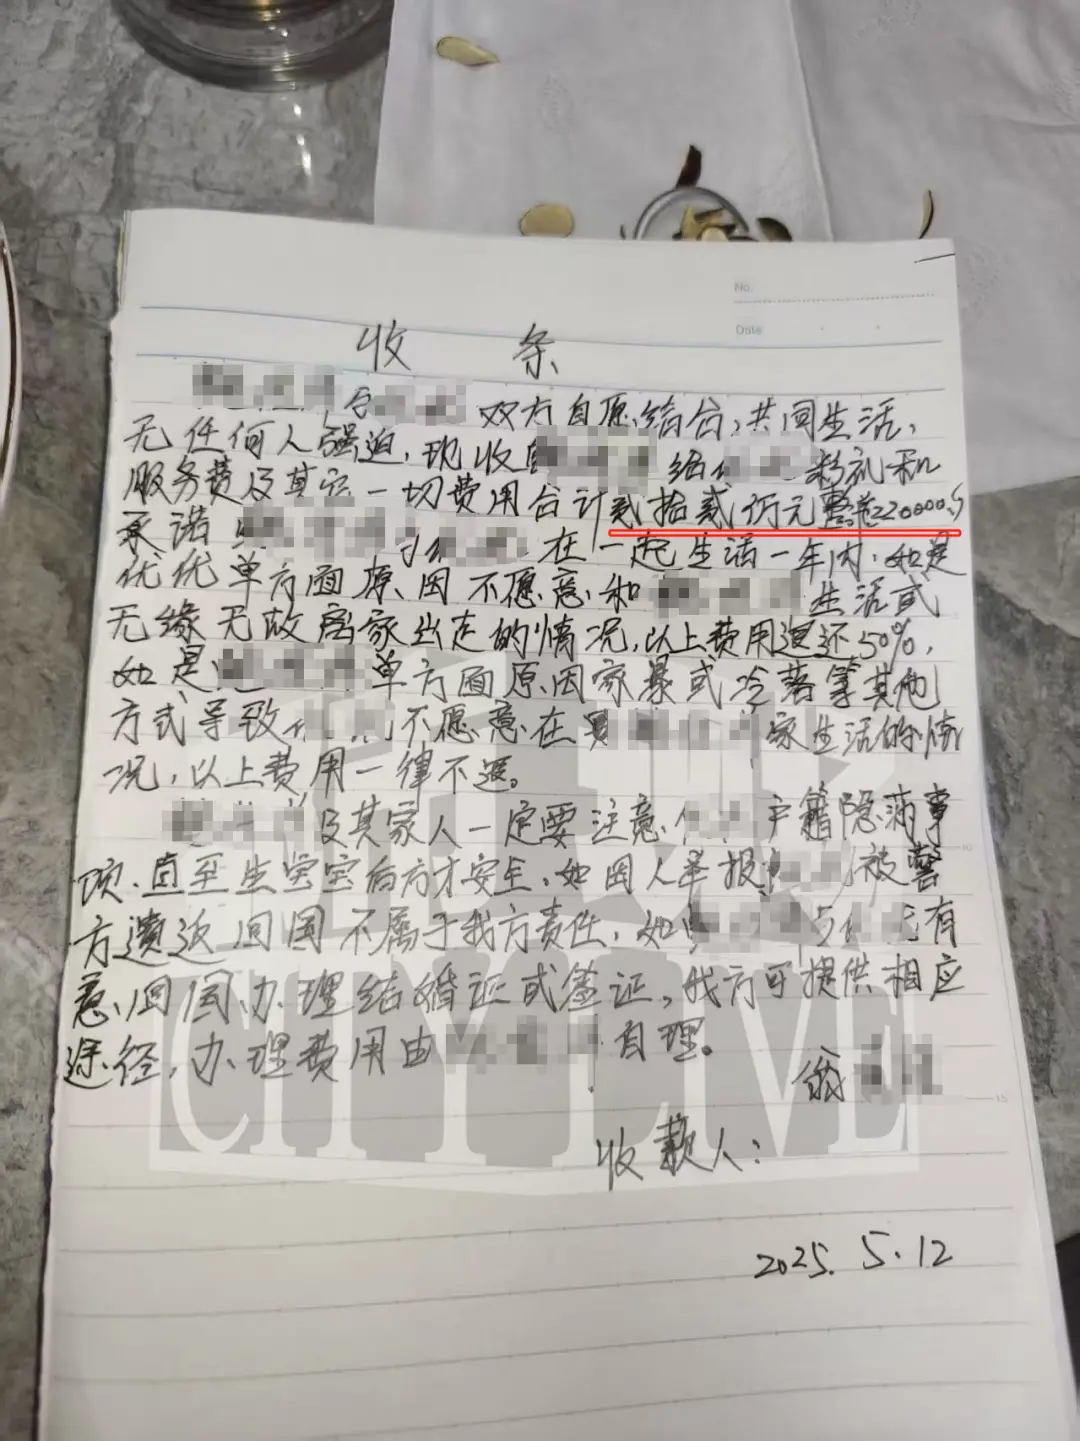 No.
Date
收 条
双方自愿结合,共同生活,
无任何人强迫,现收 给 彩礼和
服务费及其它一切费用合计贰拾贰仟元整 220000
承诺 与 在一起生活一年内,如是
优优单方面原因不愿意和 生活或
无缘无故离家出走的情况,以上费用退还50%,
如是 单方面原因家暴或冷落等其他
方式导致 不愿意在 家生活的情
况,以上费用一律不退。
及其家人一定要注意 户籍隐消事
项,直至生宝宝后方才安全,如因人举报 被警
方遣返回国不属于我方责任,如 与 有
意回国办理结婚证或签证,我方可提供相应
途径,办理费用由 自理。
翁
收款人:
2025.5.12
CITY LIVE